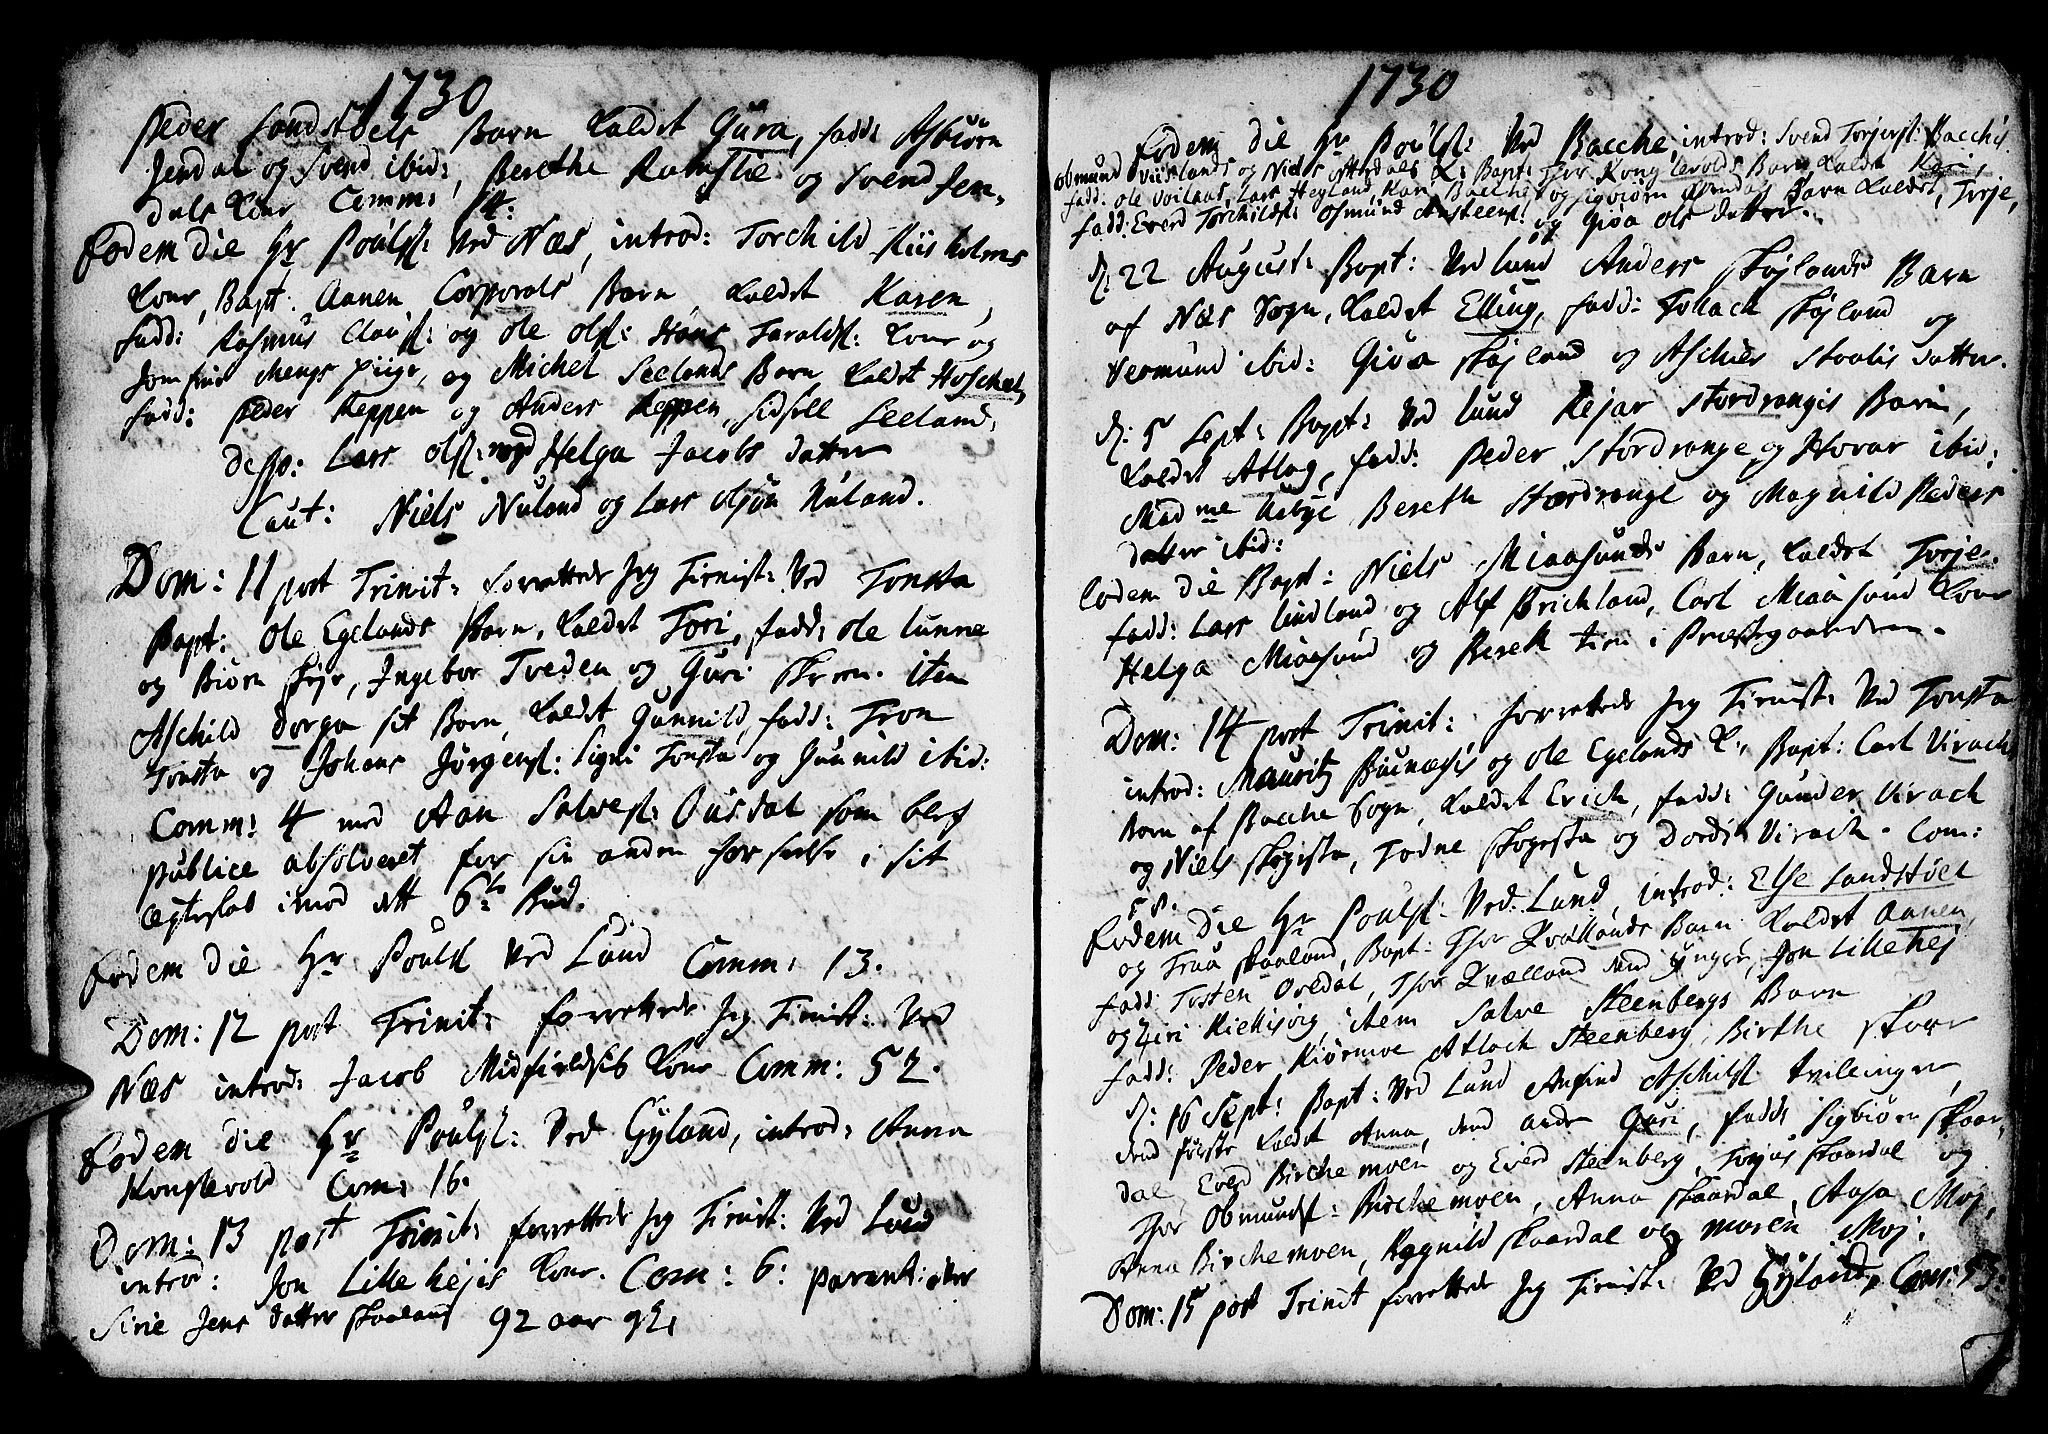 1730
Peder Landstöels Barn Kaldet Gúra, fadd: Asbiörn
Jendal og Svend ibid:, Berethe og Svend Jen-
dals Kone Comm: 14:
Eodem die Hr Poúlss: Ved Næs, introd: Torchild Kiisholms
Kone, Bapt: Aanen Corporals Barn, Kaldet Karen,
fadd: Rasmus Claúss: og Ole Olss: Haralds: Kone og
Jomfrue Pige, og Michel Seelands Barn Kaldet
fadd: Peder Reppen og Anders Reppen, Sidsell Seeland,
desp: Lars Olss: med Helga Jacobs datter
Caut: Niels Nuland og Lars Olsön Núland.
Dom: 11 post Trinit: forrettede Jeg Tienist: Ved Tonsta
Bapt: Ole Egelands Barn, Kaldet Tori, fadd: Ole Lunne
og Biörn, Ingebor Tveden og Guri Skreen. item
Aschild Dorga sit Barn, Kaldet Gunnild, fadd: Tron
Tonsta og Johans Jörgenss: Signi Tonsta og Gunnild ibid:
Comm: 4 med Aan Salvess: Ousdal som blef
publice absolveret for sin anden forseelse i sit
ægteskab imod dett 6te Bud.
Eodem die Hr Poulss Ved Lund Comm: 13.
Dom: 12 post Trinit: forrettede Jeg Tienist: Ved
Næs introd: Jacob Midfields Kone Comm: 52.
Eodem die Hr Poulss: Ved Gyland, introd: Anna
Konglevold Com: 16.
Dom: 13 post Trinit: forrettede Jeg Tienist: Ved Lund
introd: Jon Lille hejes Kone. Com: 6: parent: over
Sirie Jens datter Skaaland 92 aar gl:
1730
Eodem die Hr Poulss: Ved Bacche, introd: Svend Torjerss: Bacches
Obmund og Niels K: Bapt: Thor Konglevolds Barn Kaldet Kari,
fadd: Ole, Lars Hegland, Kari Bacche og Sigbiörn Barn Kaldet, Terje,
fadd: Everd Torchilds: Osmund Austeens: og Giöa Ols datter.
d: 22 August: Bapt: Ved Lund Anders Skiglands Barn
af Næs Sogn, Kaldet Elling, fadd: Tollach Skigland og
Vermund ibid: Giöa Skigland og Aschier datter.
d: 5 Sept: Bapt: Ved Lund Rejar Stordranges Barn,
Kaldet Atlag, fadd: Peder Stordrange og Havar ibid:
Madme Bereth Stordrange og Magnild Peders
datter ibid:
Eodem die Bapt: Niels Miaasunds Barn, Kaldet Terje.
fadd: Lars Lindland og Alf Birchland, Carl Miaasund Kone
Helga Miaasund og Bereth i Præstegaarden.
Dom: 14 post Trinit: forrettede Jeg Tienist: Ved Tonsta
introd: Mauritz og Ole Egelands K:, Bapt: Carl Virach
Barn af Bacche Sogn, Kaldet Erich, fadd: Gunder Virach
og Niels, Todne og Dordi Virach. Com:
58.
Eodem die Hr Poulss: Ved Lund, introd: Else Landstöel
og Skaaland, Bapt: Thor Kvællands Barn Kaldet Aanen,
fadd: Tosten Ovedal, Thor Kvælland dend yngre, Jon Lille hej
og Ziri, item Salve Steenbergs Barn
fadd: Peder Kiörmoe, Atlach Steenberg, Birthe
d: 16 Sept: Bapt: Ved Lund Anfind Aschilss tvilinger,
dend förste Kaldet Anna, dend anden Guri, fadd: Sigbiörn Skaar-
dal Everd Birchemoen og Everd Steenberg, Torjus Skaardal og
Thor Obmunds: Birchemoen, Anna Skaardal, Aasa Moj,
Anna Birchemoen, Ragnild Skaardal og Maren Moj.
Dom: 15 post Trinit forrettede Jeg Tienist: Ved Gyland, Com: 53.